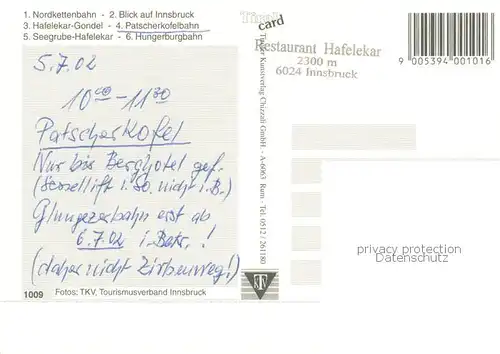 1. Nordkettenbahn - 2. Blick auf Innsbruck
3. Hafelekar-Gondel - 4. Patscherkofelbahn
5. Seegrube-Hafelekar - 6. Hungerburgbahn
5.7.02
10⁰⁰-11³⁰
Patscherkofel
Nur bis Berghotel gef.
(Sessellift i. So. nicht i. B.)
Glungezerbahn erst ab
6.7.02 i. Betr.!
(daher nicht Zirbenweg!)
1009 Fotos: TKV, Tourismusverband Innsbruck
Tirol card
Tiroler Kunstverlag Chizzali GmbH. - A-6063 Rum - Tel. 0512 / 261180
Restaurant Hafelekar
2300 m
6024 Innsbruck
9 005394 001016
privacy protection
Datenschutz